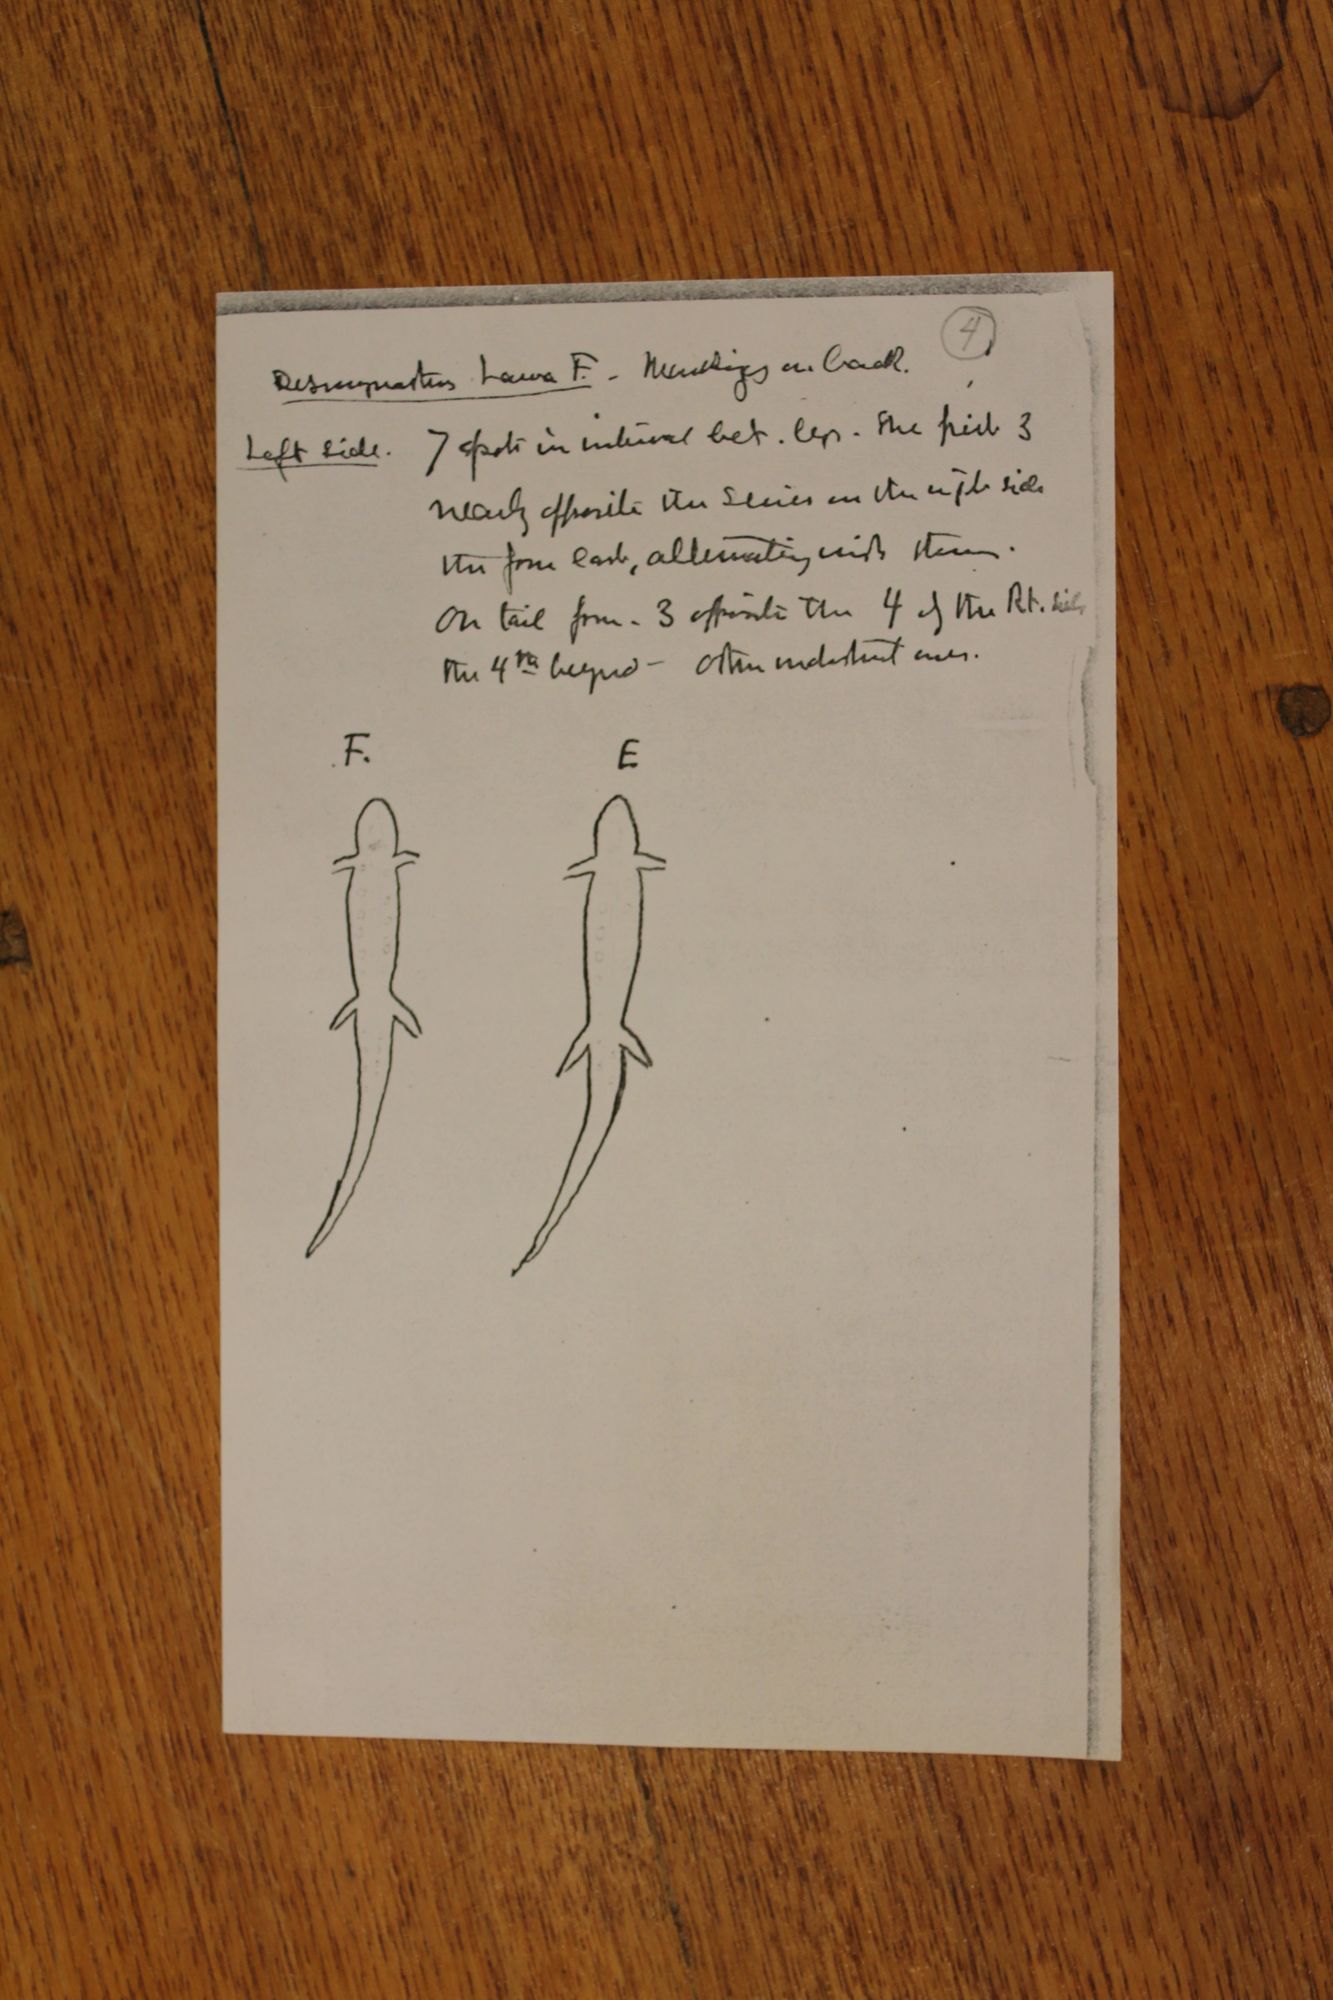 4
Desmognathus Larva F. - Markings on back.
Left side. 7 spots in interval bet. legs - the first 3
nearly opposite the series on the right side
the four last, alternating with them.
On tail four - 3 opposite the 4 of the Rt. side
the 4th beyond - other indistinct ones.
F. E